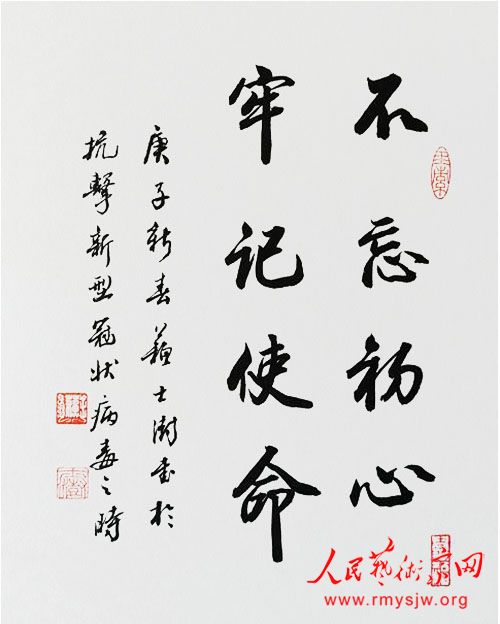 不忘初心
牢记使命
庚子新春蘇士澍書於
抗擊新型冠状病毒之時
人民藝術家网
www.rmysjw.org